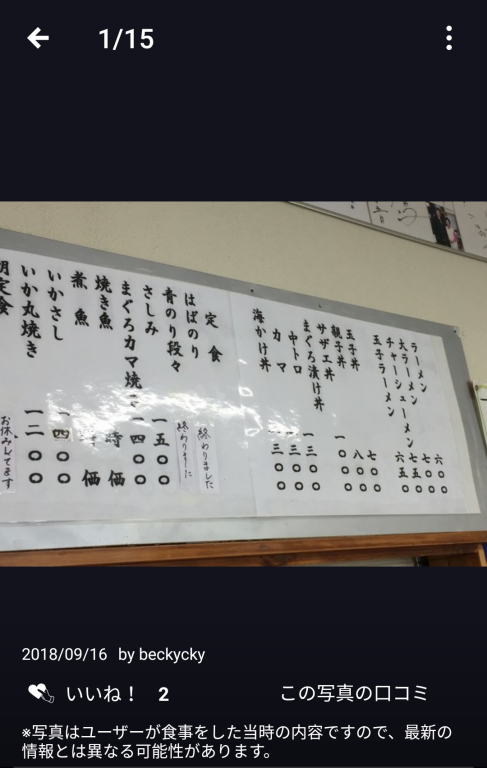 1/15
ラーメン 六〇〇
大ラーメン 七〇〇
チャーシューメン 七五〇
玉子ラーメン 六五〇
玉子丼 七〇〇
親子丼 八〇〇
サザエ丼 一〇〇〇
まぐろ漬け丼 一三〇〇
中トロ 一三〇〇
カマ 一三〇〇
海かけ丼
定食
はばのり 終わりました
青のり段々 終わりました
さしみ 一五〇〇
まぐろカマ焼 一四〇〇
焼き魚 時価
煮魚 時価
いかさし 一四〇〇
いか丸焼き 一二〇〇
朝定食 お休みしてます
2018/09/16 by beckycky
いいね！ 2
この写真の口コミ
※写真はユーザーが食事をした当時の内容ですので、最新の
情報とは異なる可能性があります。